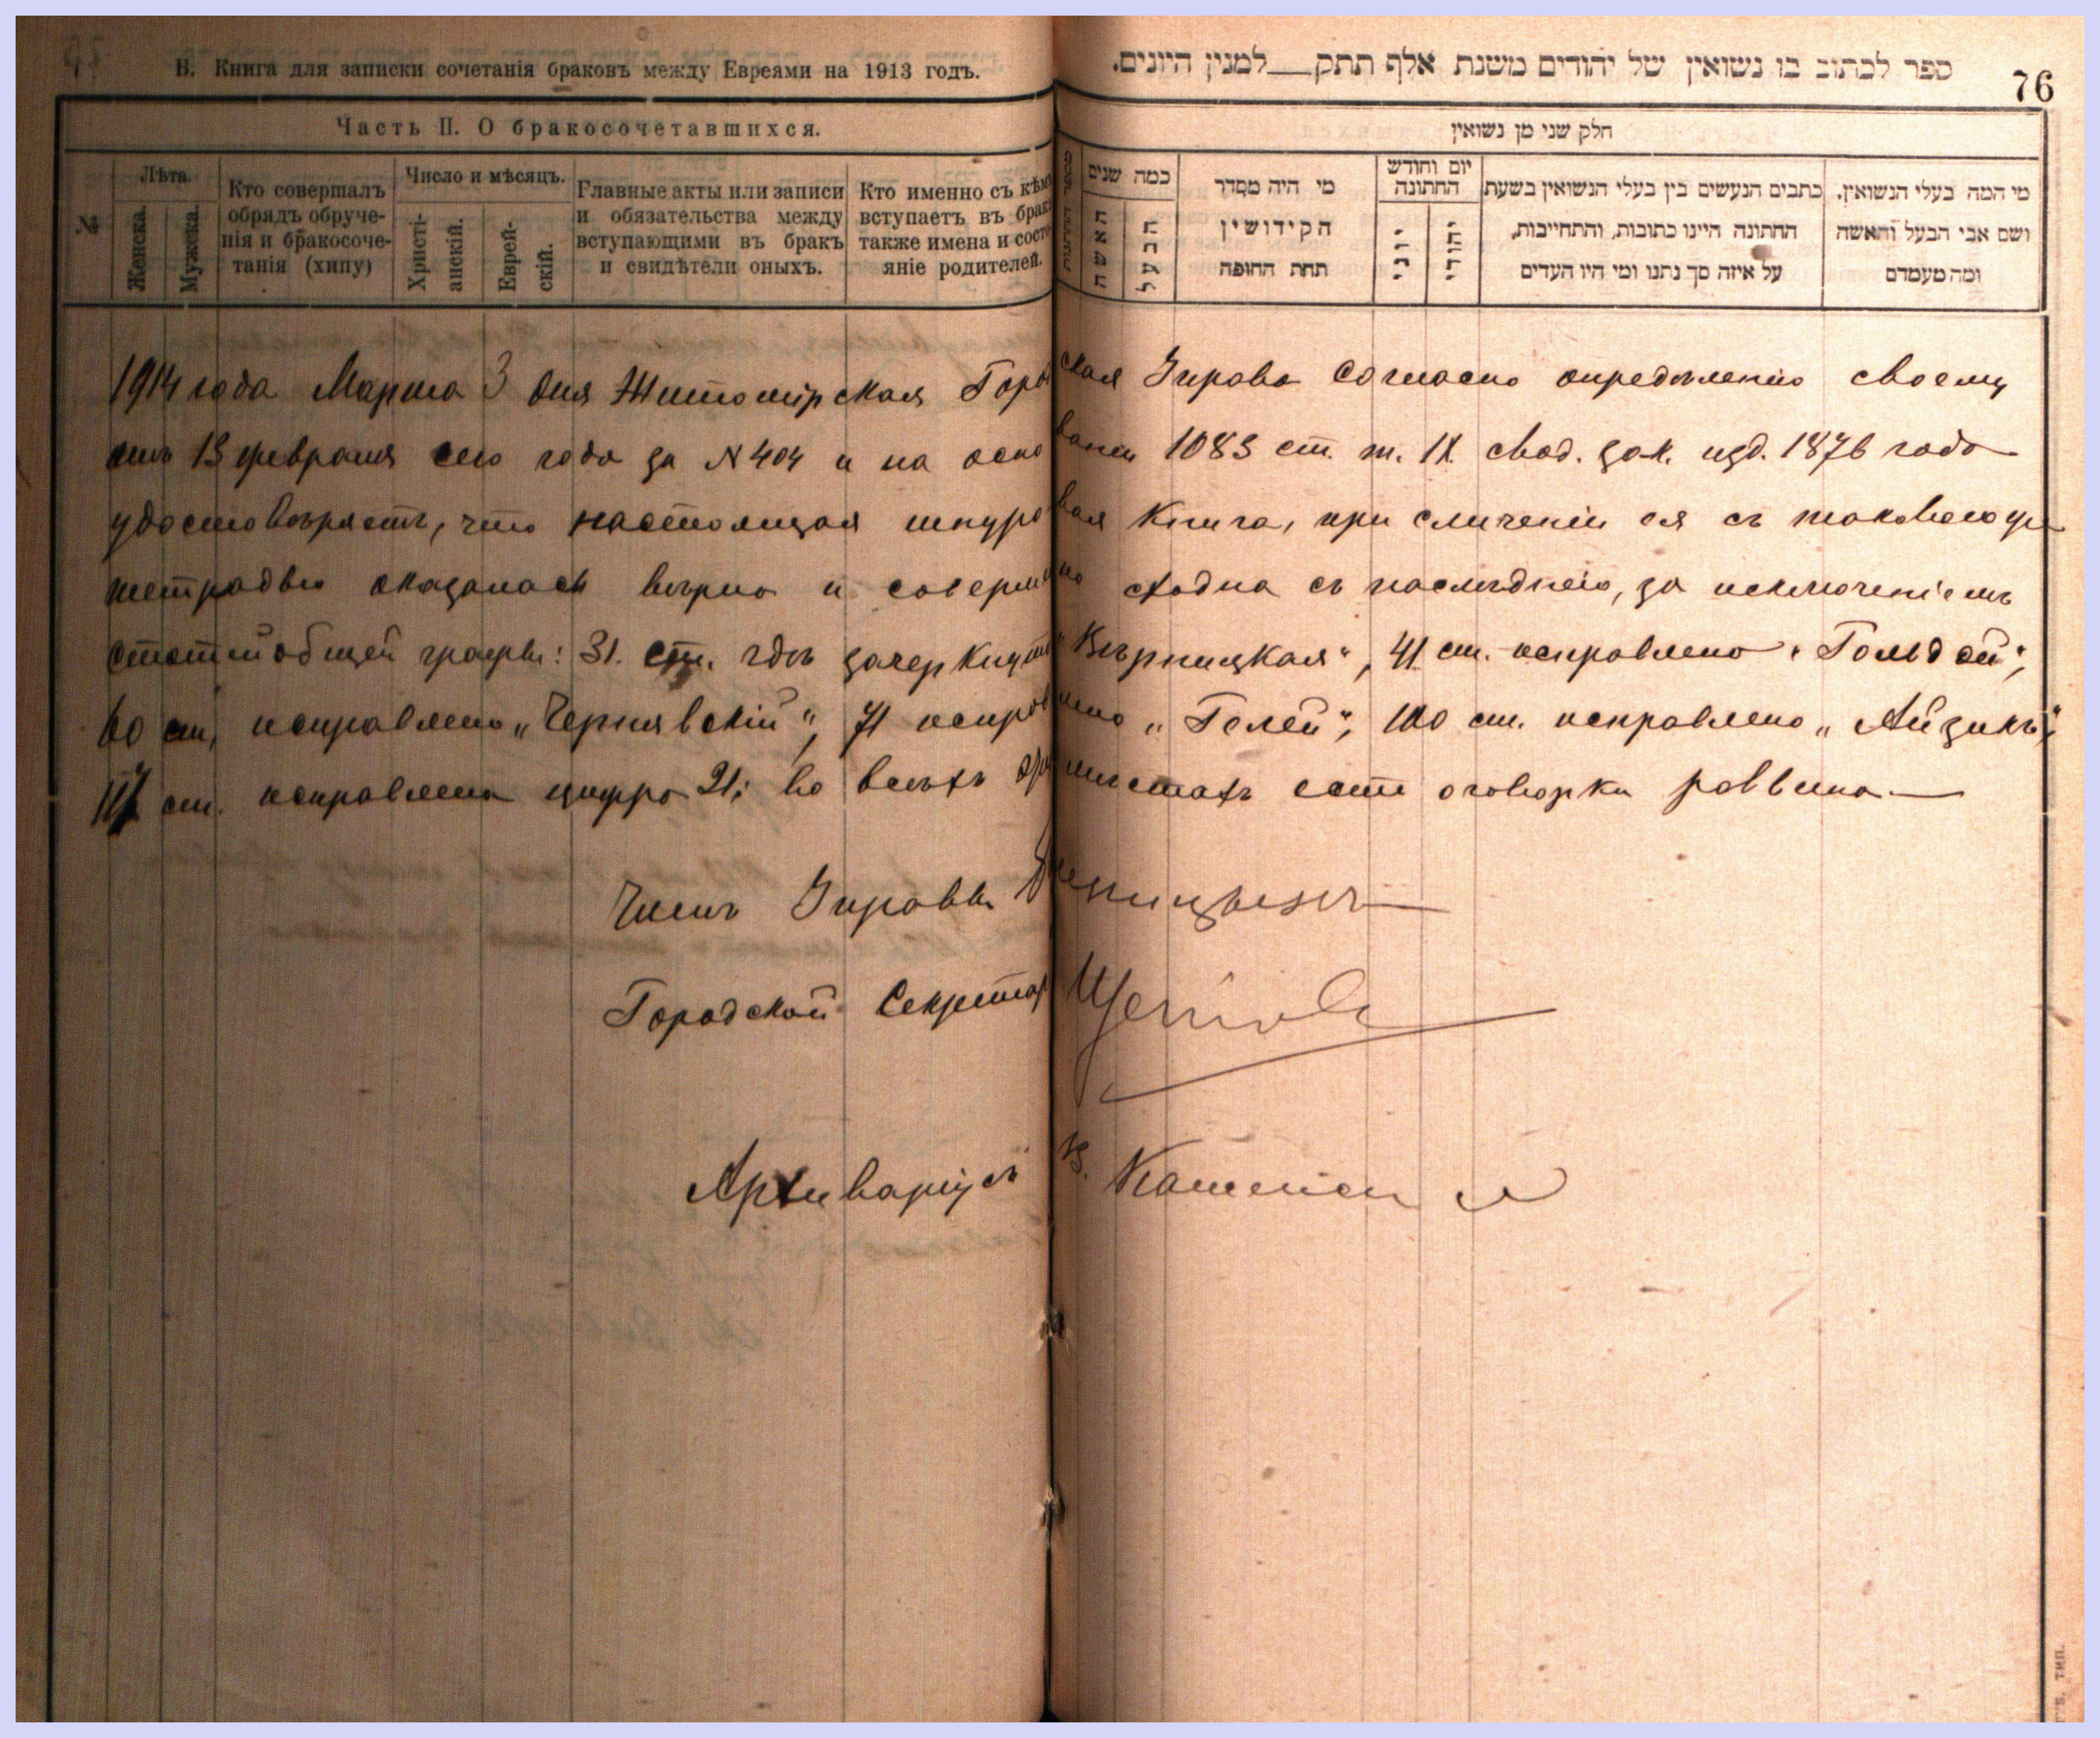 В. Книга для записки сочетанія браковъ между Евреями на 1913 годъ.
ספר לכתוב בו נשואין של יהודים משנת אלף תתק__למנין היונים.
76
Часть II. О бракосочетавшихся.
חלק שני מן נשואין
№
Лѣта.
Женска.
Мужска.
Кто совершалъ
обрядъ обруче-
нія и бракосоче-
танія (хипу)
Число и мѣсяцъ.
Христі-
анскій.
Еврей-
скій.
Главные акты или записи
и обязательства между
вступающими въ бракъ
и свидѣтели оныхъ.
Кто именно съ кѣмъ
вступаетъ въ бракъ
также имена и состо-
яніе родителей.
כמה שנים
האשה
הבעל
מי היה מסדר
הקידושין
תחת החופה
יום וחודש
החתונה
יוני
יהודי
כתבים הנעשים בין בעלי הנשואין בשעת
החתונה היינו כתובות, והתחייבות,
על איזה סך נתנו ומי היו העדים
מי המה בעלי הנשואין.
ושם אבי הבעל והאשה
ומה מעמדם
1914 года Марта 3 дня Житомірская Городская Управа согласно опредѣленію своему
отъ 13 февраля сего года за N 404 и на основаніи 1083 ст. т. IX свод. зак. изд. 1876 года
удостовѣряетъ, что настоящая шнуровая книга, при сличеніи ея съ таковою же
тетрадью оказалась вѣрна и совершенно сходна съ послѣднею, за исключеніемъ
статей общей графы: 31. ст. гдѣ зачеркнуто "Вѣрницкая", 41 ст. исправлено "Гольдой";
60 ст. исправлено "Чернявскій", 71 исправлено "Гелей"; 100 ст. исправлено "Айзикъ";
117 ст. исправлена цифра 21; во всѣхъ этихъ мѣстахъ есть оговорки раввина.—
Членъ Управы
Городской Секретарь
Архиваріусъ В.